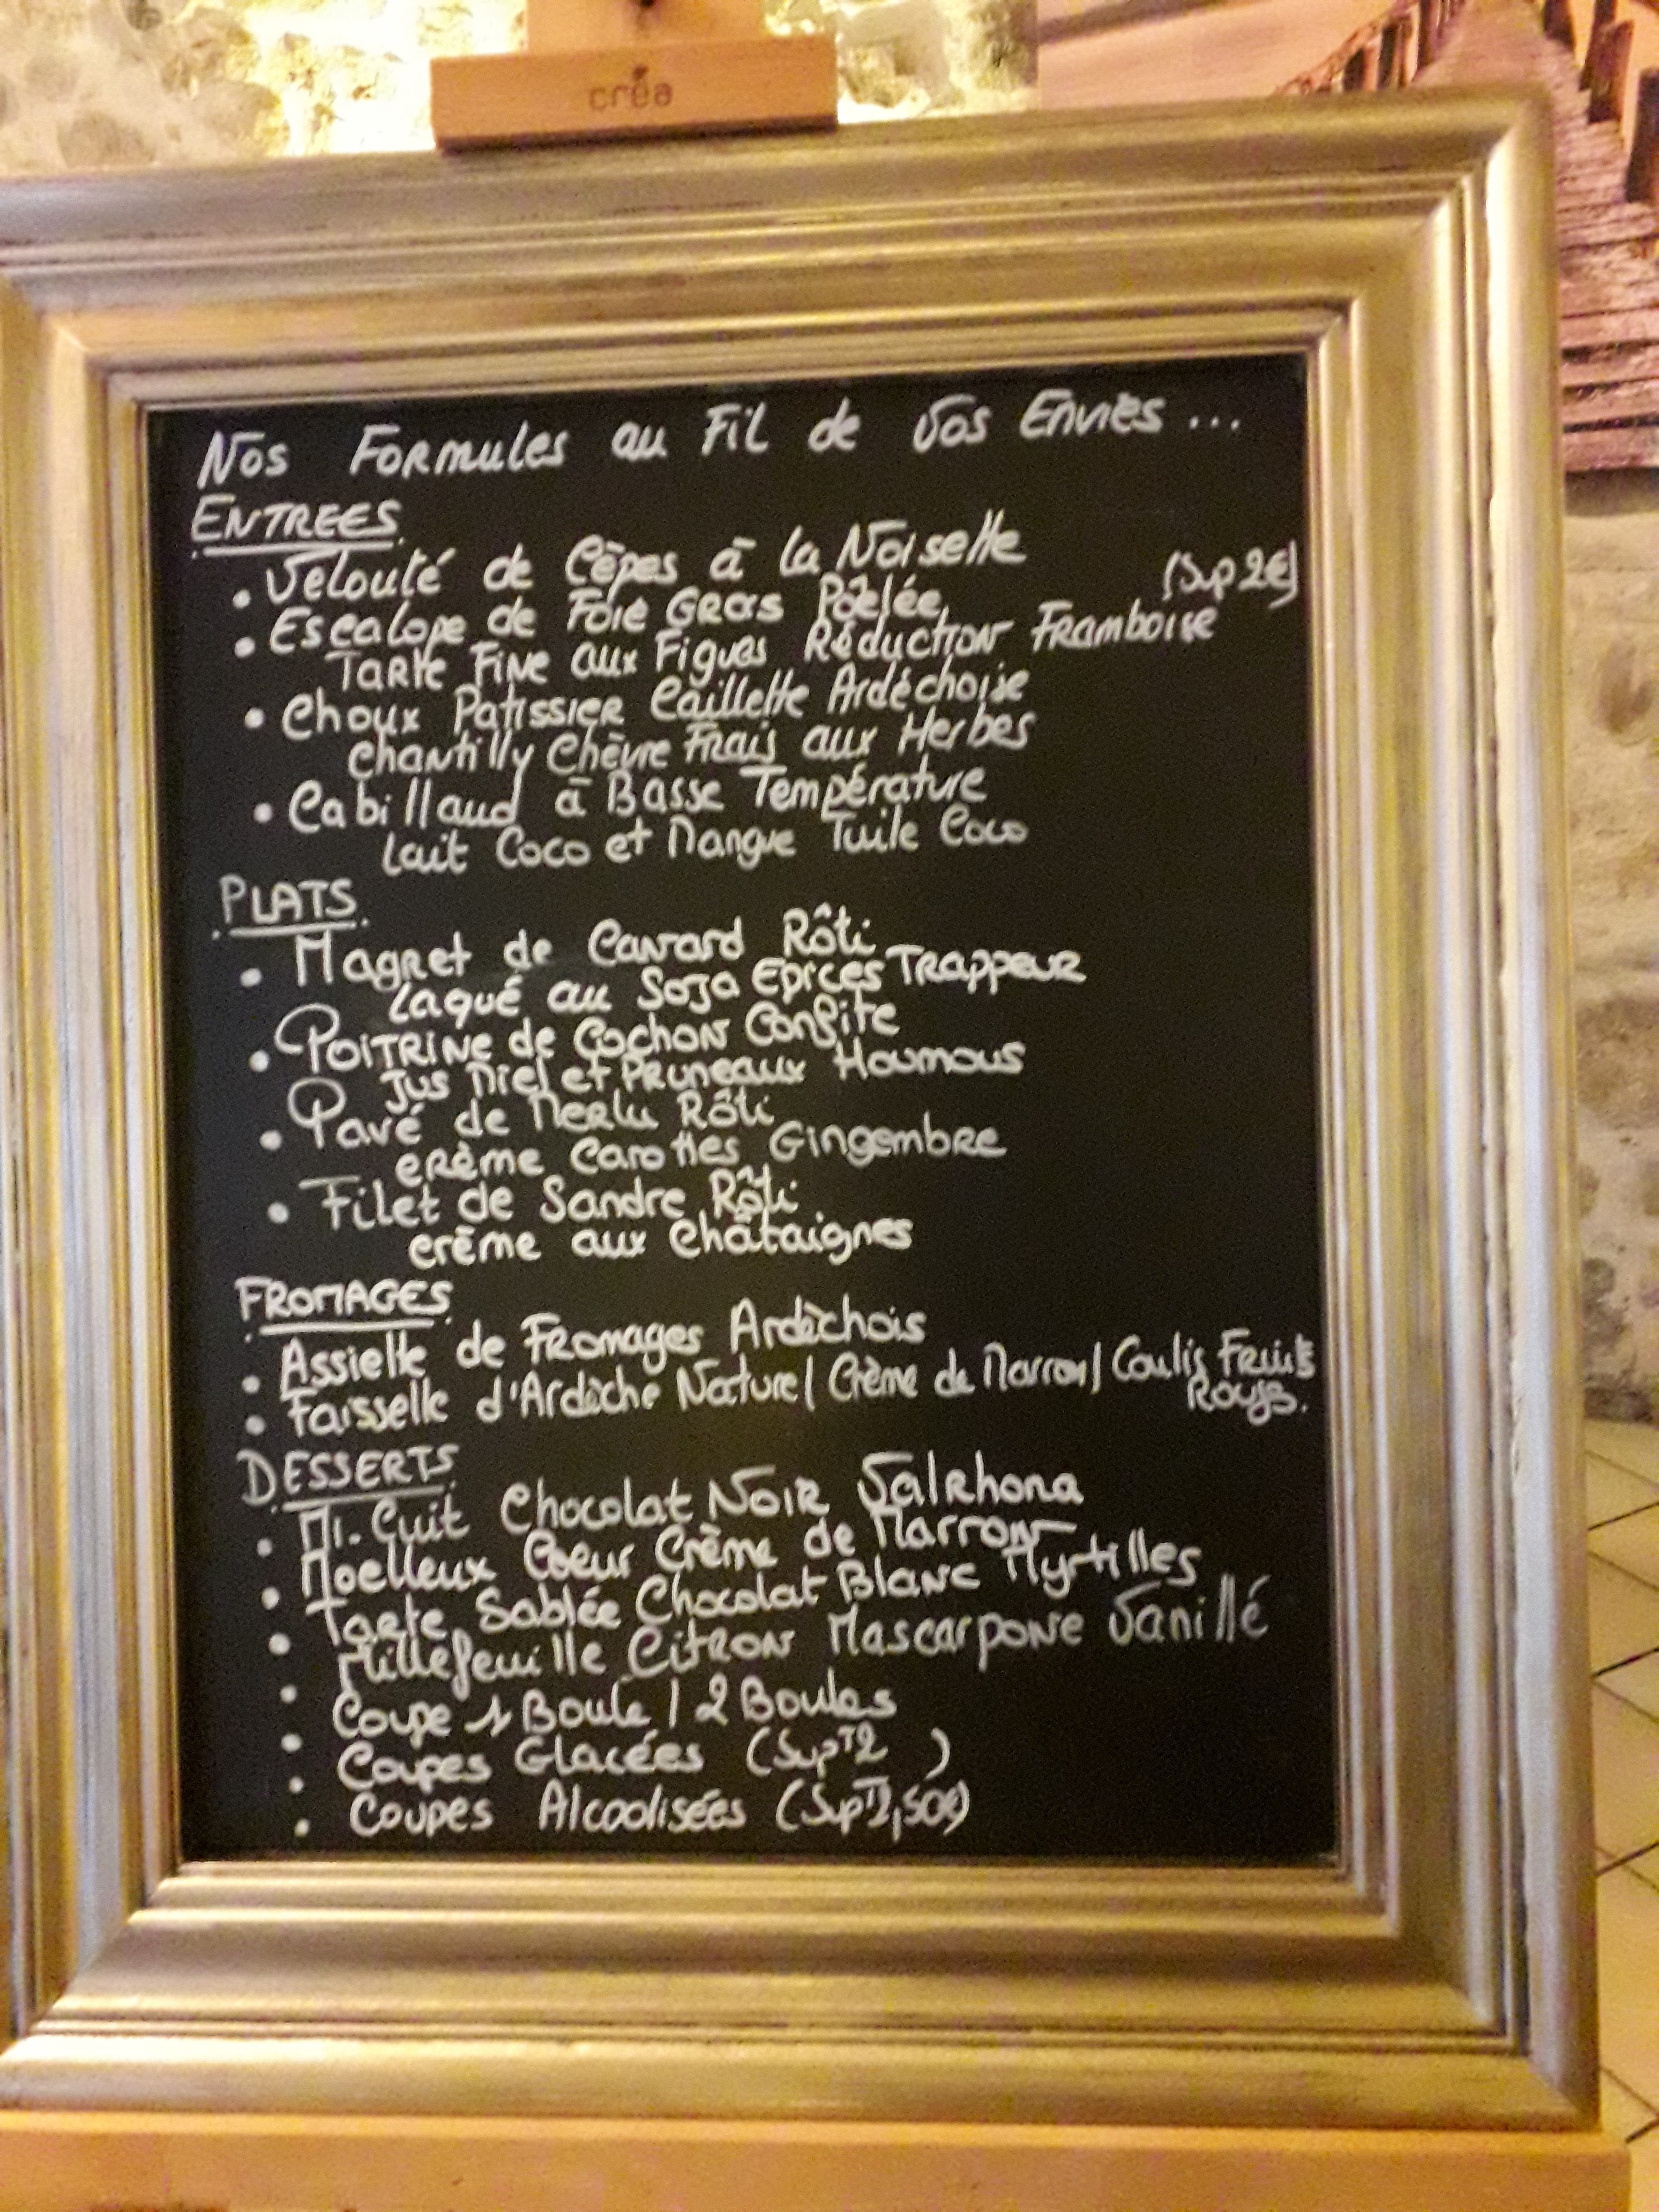 créa
Nos Formules au Fil de Vos Envies ...
ENTREES
• Velouté de Cèpes à la Noisette
• Escalope de Foie Gras Poêlée (Sup 2€)
Tarte Fine aux Figues Réduction Framboise
• Choux Patissier Caillette Ardéchoise
Chantilly Chèvre Frais aux Herbes
• Cabillaud à Basse Température
Lait Coco et Mangue Tuile Coco
PLATS
• Magret de Canard Rôti
Laqué au Soja Epices Trappeur
• Poitrine de Cochon Confite
Jus Miel et Pruneaux Houmous
• Pavé de Merlu Rôti
Crème Carottes Gingembre
• Filet de Sandre Rôti
crème aux Châtaignes
FROMAGES
• Assiette de Fromages Ardèchois
• Faisselle d'Ardèche Nature / Crème de Marron / Coulis Fruits
Rouges.
DESSERTS
• Mi-Cuit Chocolat Noir Valrhona
• Moelleux Coeur Crème de Marron
• Tarte Sablée Chocolat Blanc Myrtilles
• Millefeuille Citron Mascarpone Vanillé
• Coupe 1 Boule / 2 Boules
• Coupes Glacées (SupT 2 )
• Coupes Alcoolisées (SupT ,50€)